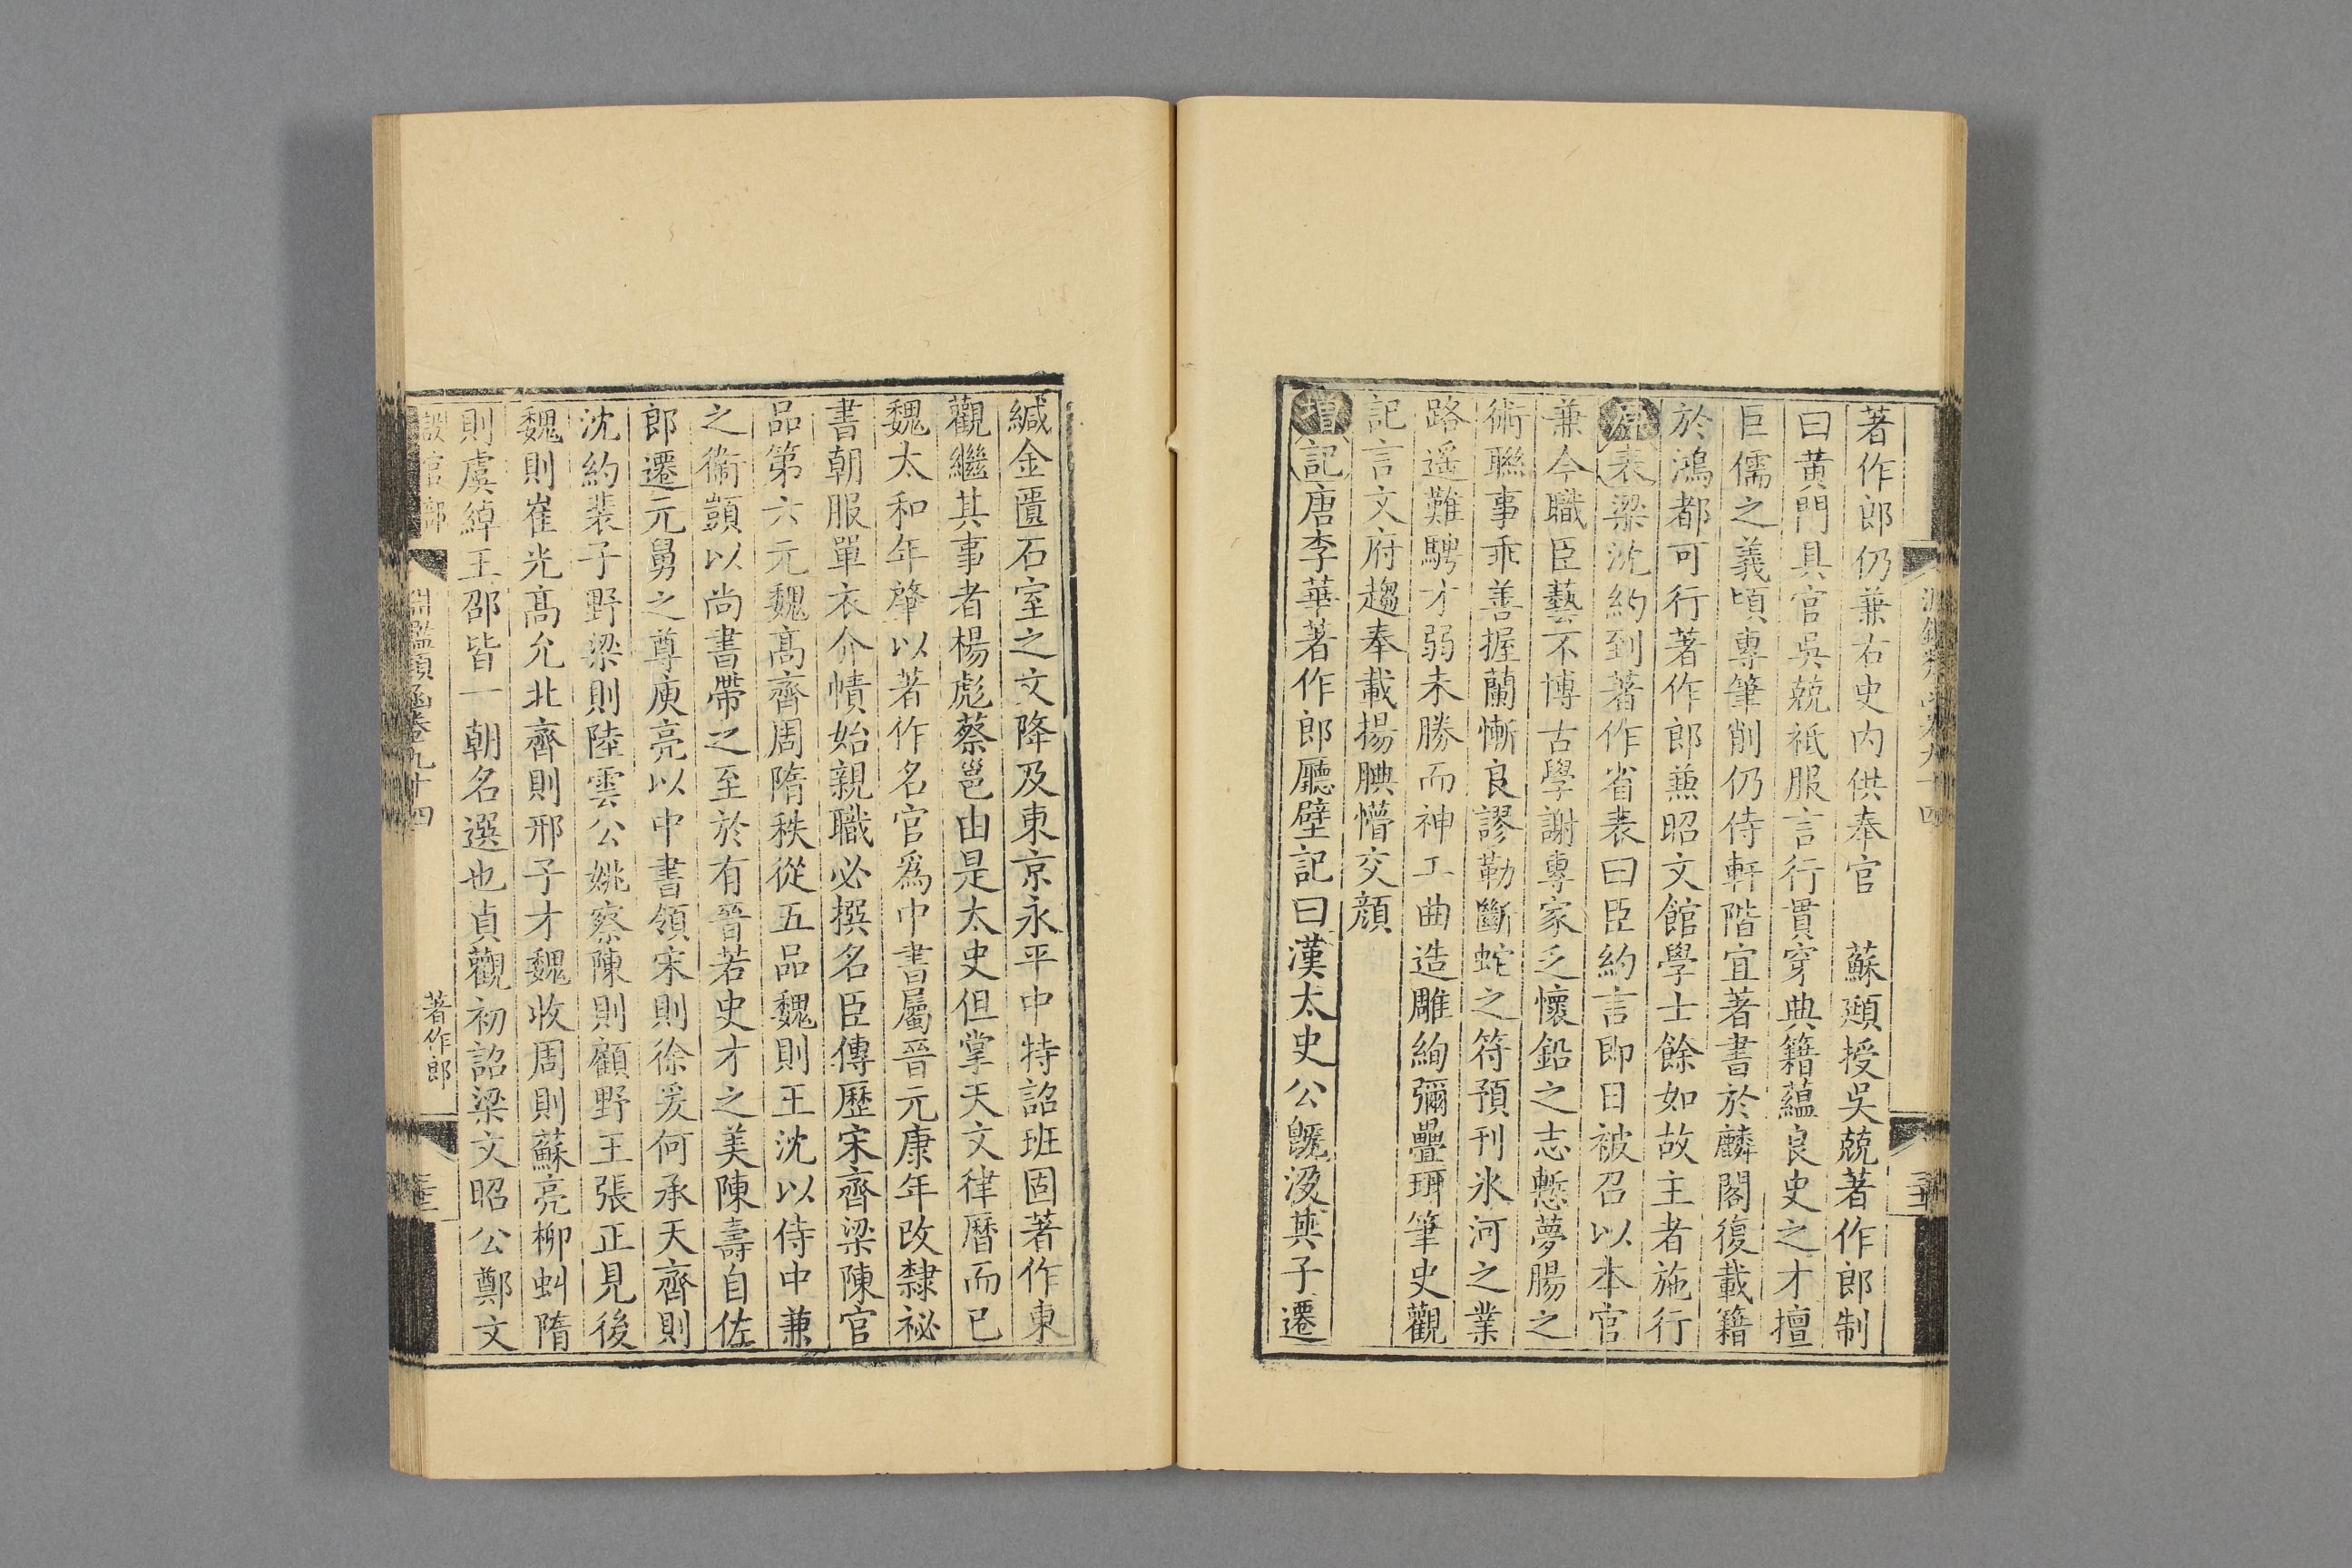 著作郎仍兼右史内供奉官　蘇頲授吳兢著作郎制
曰黄門具官吳兢祗服言行貫穿典籍蘊良史之才擅
巨儒之義頃專筆削仍侍軒階宜著書於麟閣復載籍
於鴻都可行著作郎兼昭文館學士餘如故主者施行
原表梁沈約到著作省表曰臣約言即日被召以本官
兼今職臣藝不博古學謝專家乏懷鉛之志慙夢腸之
術聮事乖善握蘭慚良謬勒斷蛇之符預刊氷河之業
路遥難騁才弱未勝而神工曲造雕絢彌疊珥筆史觀
記言文府趨奉載揚腆懵交顔
增記唐李華著作郎廳壁記曰漢太史公旣没其子遷
淵鑑類函卷九十四
緘金匱石室之文降及東京永平中特詔班固著作東
觀繼其事者楊彪蔡邕由是太史但掌天文律曆而已
魏太和年肇以著作名官爲中書屬晉元康年改隸祕
書朝服單衣介幘始親職必撰名臣傳歷宋齊梁陳官
品第六元魏高齊周隋秩從五品魏則王沈以侍中兼
之衛顗以尚書帶之至於有晉若史才之美陳壽自佐
郎遷元舅之尊庾亮以中書領宋則徐爰何承天齊則
沈約裴子野梁則陸雲公姚察陳則顧野王張正見後
魏則崔光高允北齊則邢子才魏收周則蘇亮柳虯隋
則虞綽王邵皆一朝名選也貞觀初詔梁文昭公鄭文
設官部
淵鑑類函卷九十四
著作郎